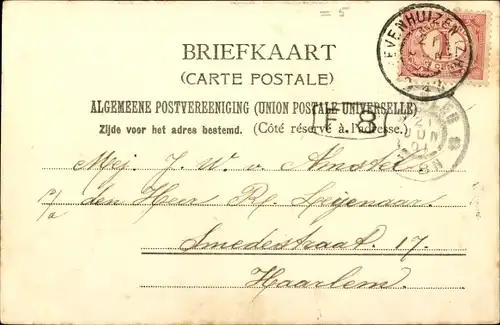 = 5
BRIEFKAART
(CARTE POSTALE)
ALGEMEENE POSTVEREENIGING (UNION POSTALE UNIVERSELLE)
Zijde voor het adres bestemd. (Côté réservé à l'adresse.)
EVENHUIZEN (Z.H.)
F 8
Mej. J. W. v. Amstel
p/a den Heer Rl. Leijenaar
Smedestraat. 17.
Haarlem.